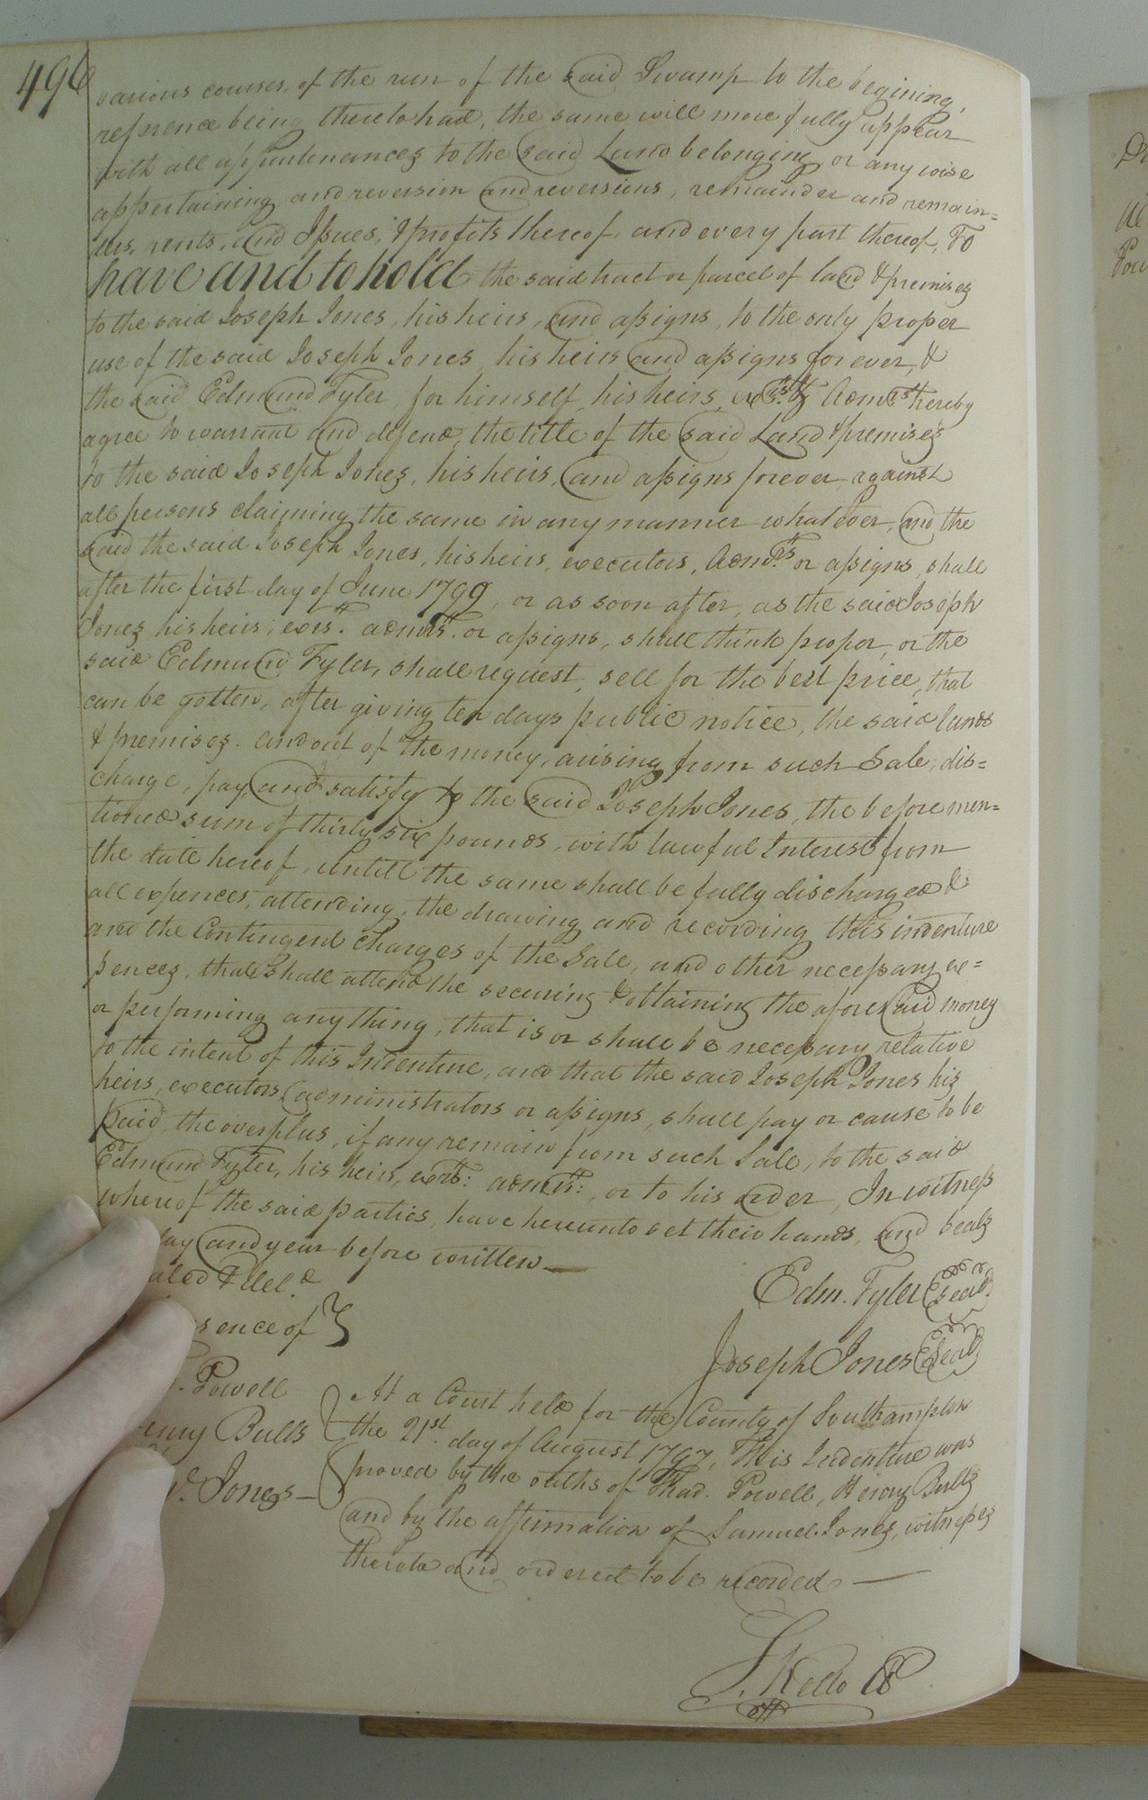 496
various courses, of the run of the said Swamp to the begining,
reference being thereto had, the same will more fully appear
with all appurtenances to the said Land belonging or any wise
appertaining and reversion and reversions, remainder and remain=
ders, rents, and Issues, & profits thereof, and every part thereof, To
have and to hold the said tract or parcel of land & premises
to the said Joseph Jones, his heirs, and assigns, to the only proper
use of the said Joseph Jones, his heirs and assigns for ever, &
the said Edmund Tyler, for himself, his heirs, exrs. & Admrs. hereby
agree to warrant and defend, the title of the said Land & premises
to the said Joseph Jones, his heirs, and assigns forever against
all persons claiming the same in any manner whatever, and the
said the said Joseph Jones, his heirs, executors, Admrs. or assigns, shall
after the first day of June 1799, or as soon after, as the said Joseph
Jones his heirs, exrs. admrs. or assigns, shall think propor, or the
said Edmund Tyler, shall request, sell for the best price, that
can be gotten, after giving ten days public notice, the said lands
& premises. and out of the money, arising from such Sale, dis=
charge, pay, and satisfy to the said Joseph Jones, the before men=
tioned sum of thirty six pounds, with lawful Interest from
the date hereof, Untill the same shall be fully discharged &
all expences, attending, the drawing and recording this indenture
and the Contingent Charges of the Sale, and other necessary ex=
pences, that shall attend the securing & obtaining the aforesaid money
or performing any thing, that is or shall be necessary relative
to the intent of this Indenture, and that the said Joseph Jones his
heirs, executors, administrators or assigns, shall pay or cause to be
paid, the overplus, if any remain from such Sale, to the said
Edmund Tyler, his heirs, exrs: admrs:, or to his order, In witness
whereof the said parties, have hereunto set their hands, and seals
day and year before written—
aled & del.d
Edm. Tyler (Seal)
esence of
Joseph Jones (Seal)
. Powell
enry Bulls
Jones—
At a Court held for the County of Southampton
the 21st. day of August 1797, This Indenture was
proved by the oaths of Thad. Powell, Henry Bulls
and by the affirmation of Samuel Jones, witnesses
thereto and ordered to be recorded —
S. Kello CC